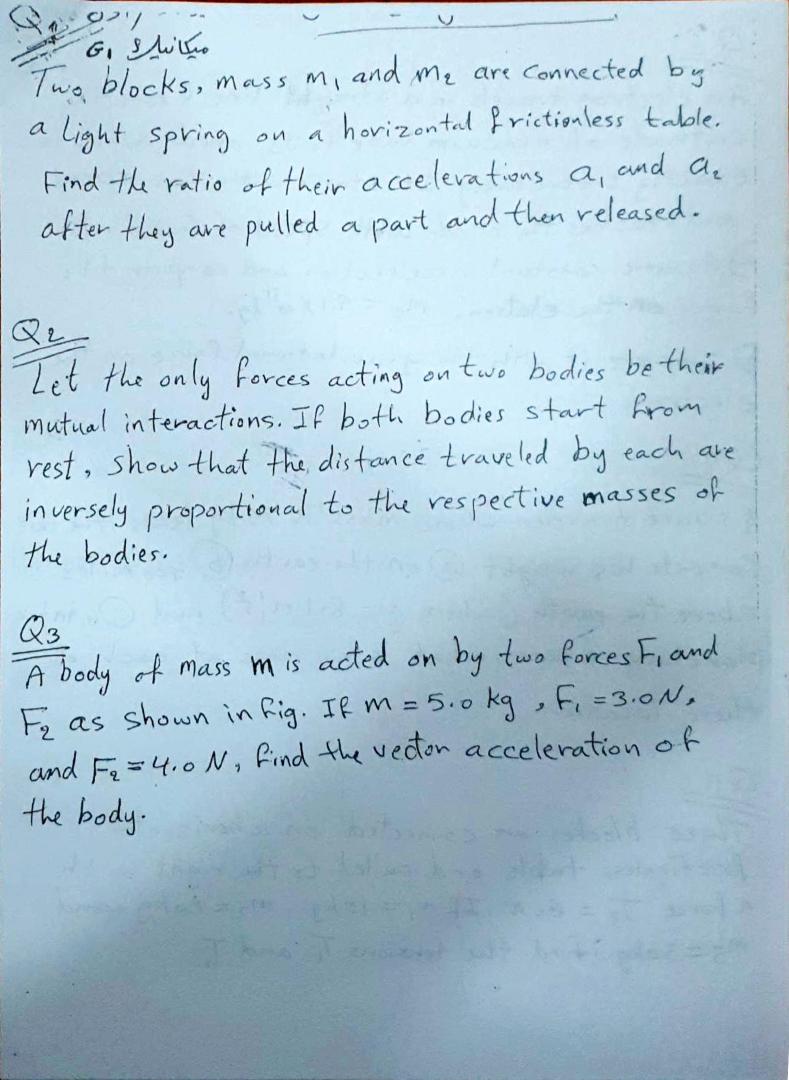 G1 ميكانيك
Two blocks, mass m₁ and m₂ are connected by
a light spring on a horizontal frictionless table.
Find the ratio of their accelerations a₁ and a₂
after they are pulled a part and then released.
Q2
Let the only forces acting on two bodies be their
mutual interactions. If both bodies start from
rest, show that the distance traveled by each are
inversely proportional to the respective masses of
the bodies.
Q3
A body of mass m is acted on by two forces F₁ and
F₂ as shown in fig. If m = 5.0 kg , F₁ = 3.0 N,
and F₂ = 4.0 N, find the vector acceleration of
the body.